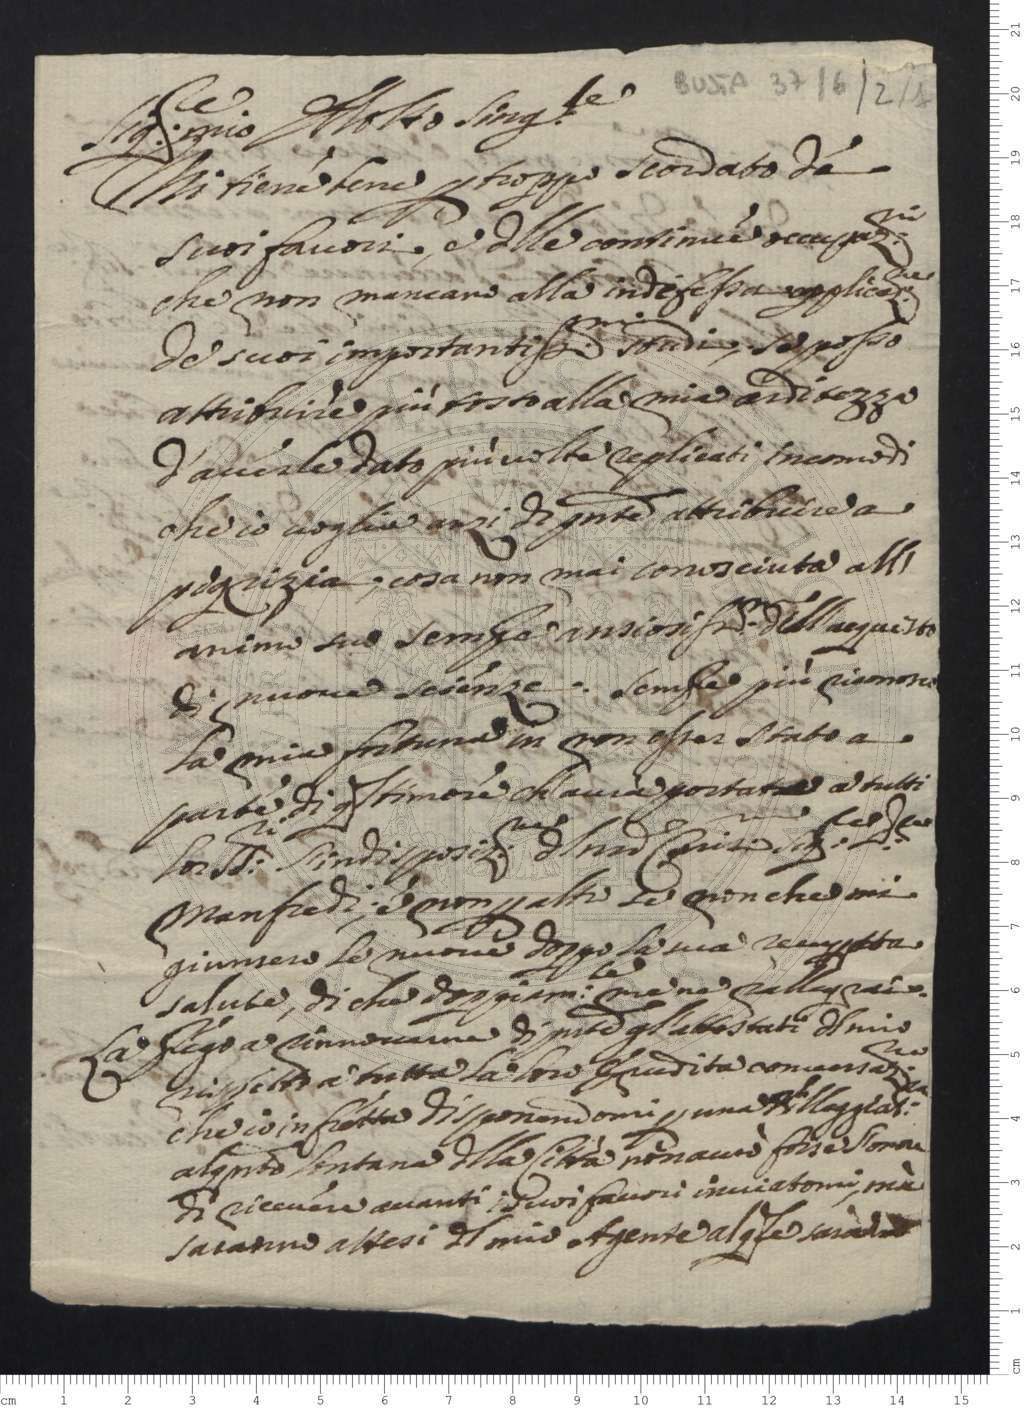 BUSTA 37/6/2/1
Sig.re mio Molto Sing.le
Mi tiene bene p troppo scordato dé
suoi favori, e dlle continué occupaz.ni
che non mancano alla indefessa applicaz.ne
dé suoi importantiss.mi studi, se posso
attribuire più tosto alla mia arditezza
d'averle dato più volte replicati incomodi
che io voglia anzi di qnto attribuire a
pigrizia, cosa non mai conosciuta all
animo suo sempre ansiosiss.mo dell acquisto
di nuove scienze. sempre più riconosco
la mia fortuna in non esser stato a
parte di q timore ch'avrà portato a tutti
lor SS.ri l'indisposiz.ne dl nro Sig.
Manfredi, e non p altro se non che mi
giunsero le nuove doppo la sua
salute, di che doppiam.te me ne rallegrai.
La prego a rinnovarne di pnte gl'attestati dl mio
rispetto a tutta la loro erudita conversaz.ne
che io in fretta disponendomi p una Villeggiat.ra
alqnto lontana dlla Città non avrò forse l'onore
di ricevere avanti i suoi favori inviatomi, mà
saranno attesi dl mio Agente al qle sarà